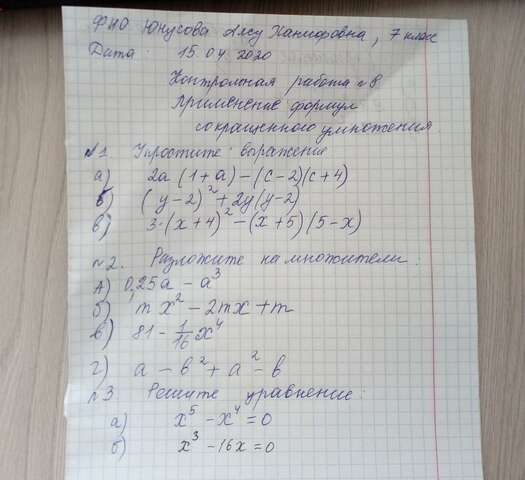 ФИО Юнусова Алсу Ханифовна, 7 класс
Дата: 15.04.2020
Контрольная работа №8
Применение формул
сокращенного умножения
№1. Упростите выражения
а) 2a (1+a)-(c-2)(c+4)
б) (y-2)²+2y(y-2)
в) 3·(x+4)²-(x+5)(5-x)
№2. Разложите на множители:
А) 0,25a - a³
б) mx² - 2mx + m
в) 81 - 1/16 x⁴
г) a - b² + a² - b
№3 Решите уравнение:
а) x⁵ - x⁴ = 0
б) x³ - 16x = 0